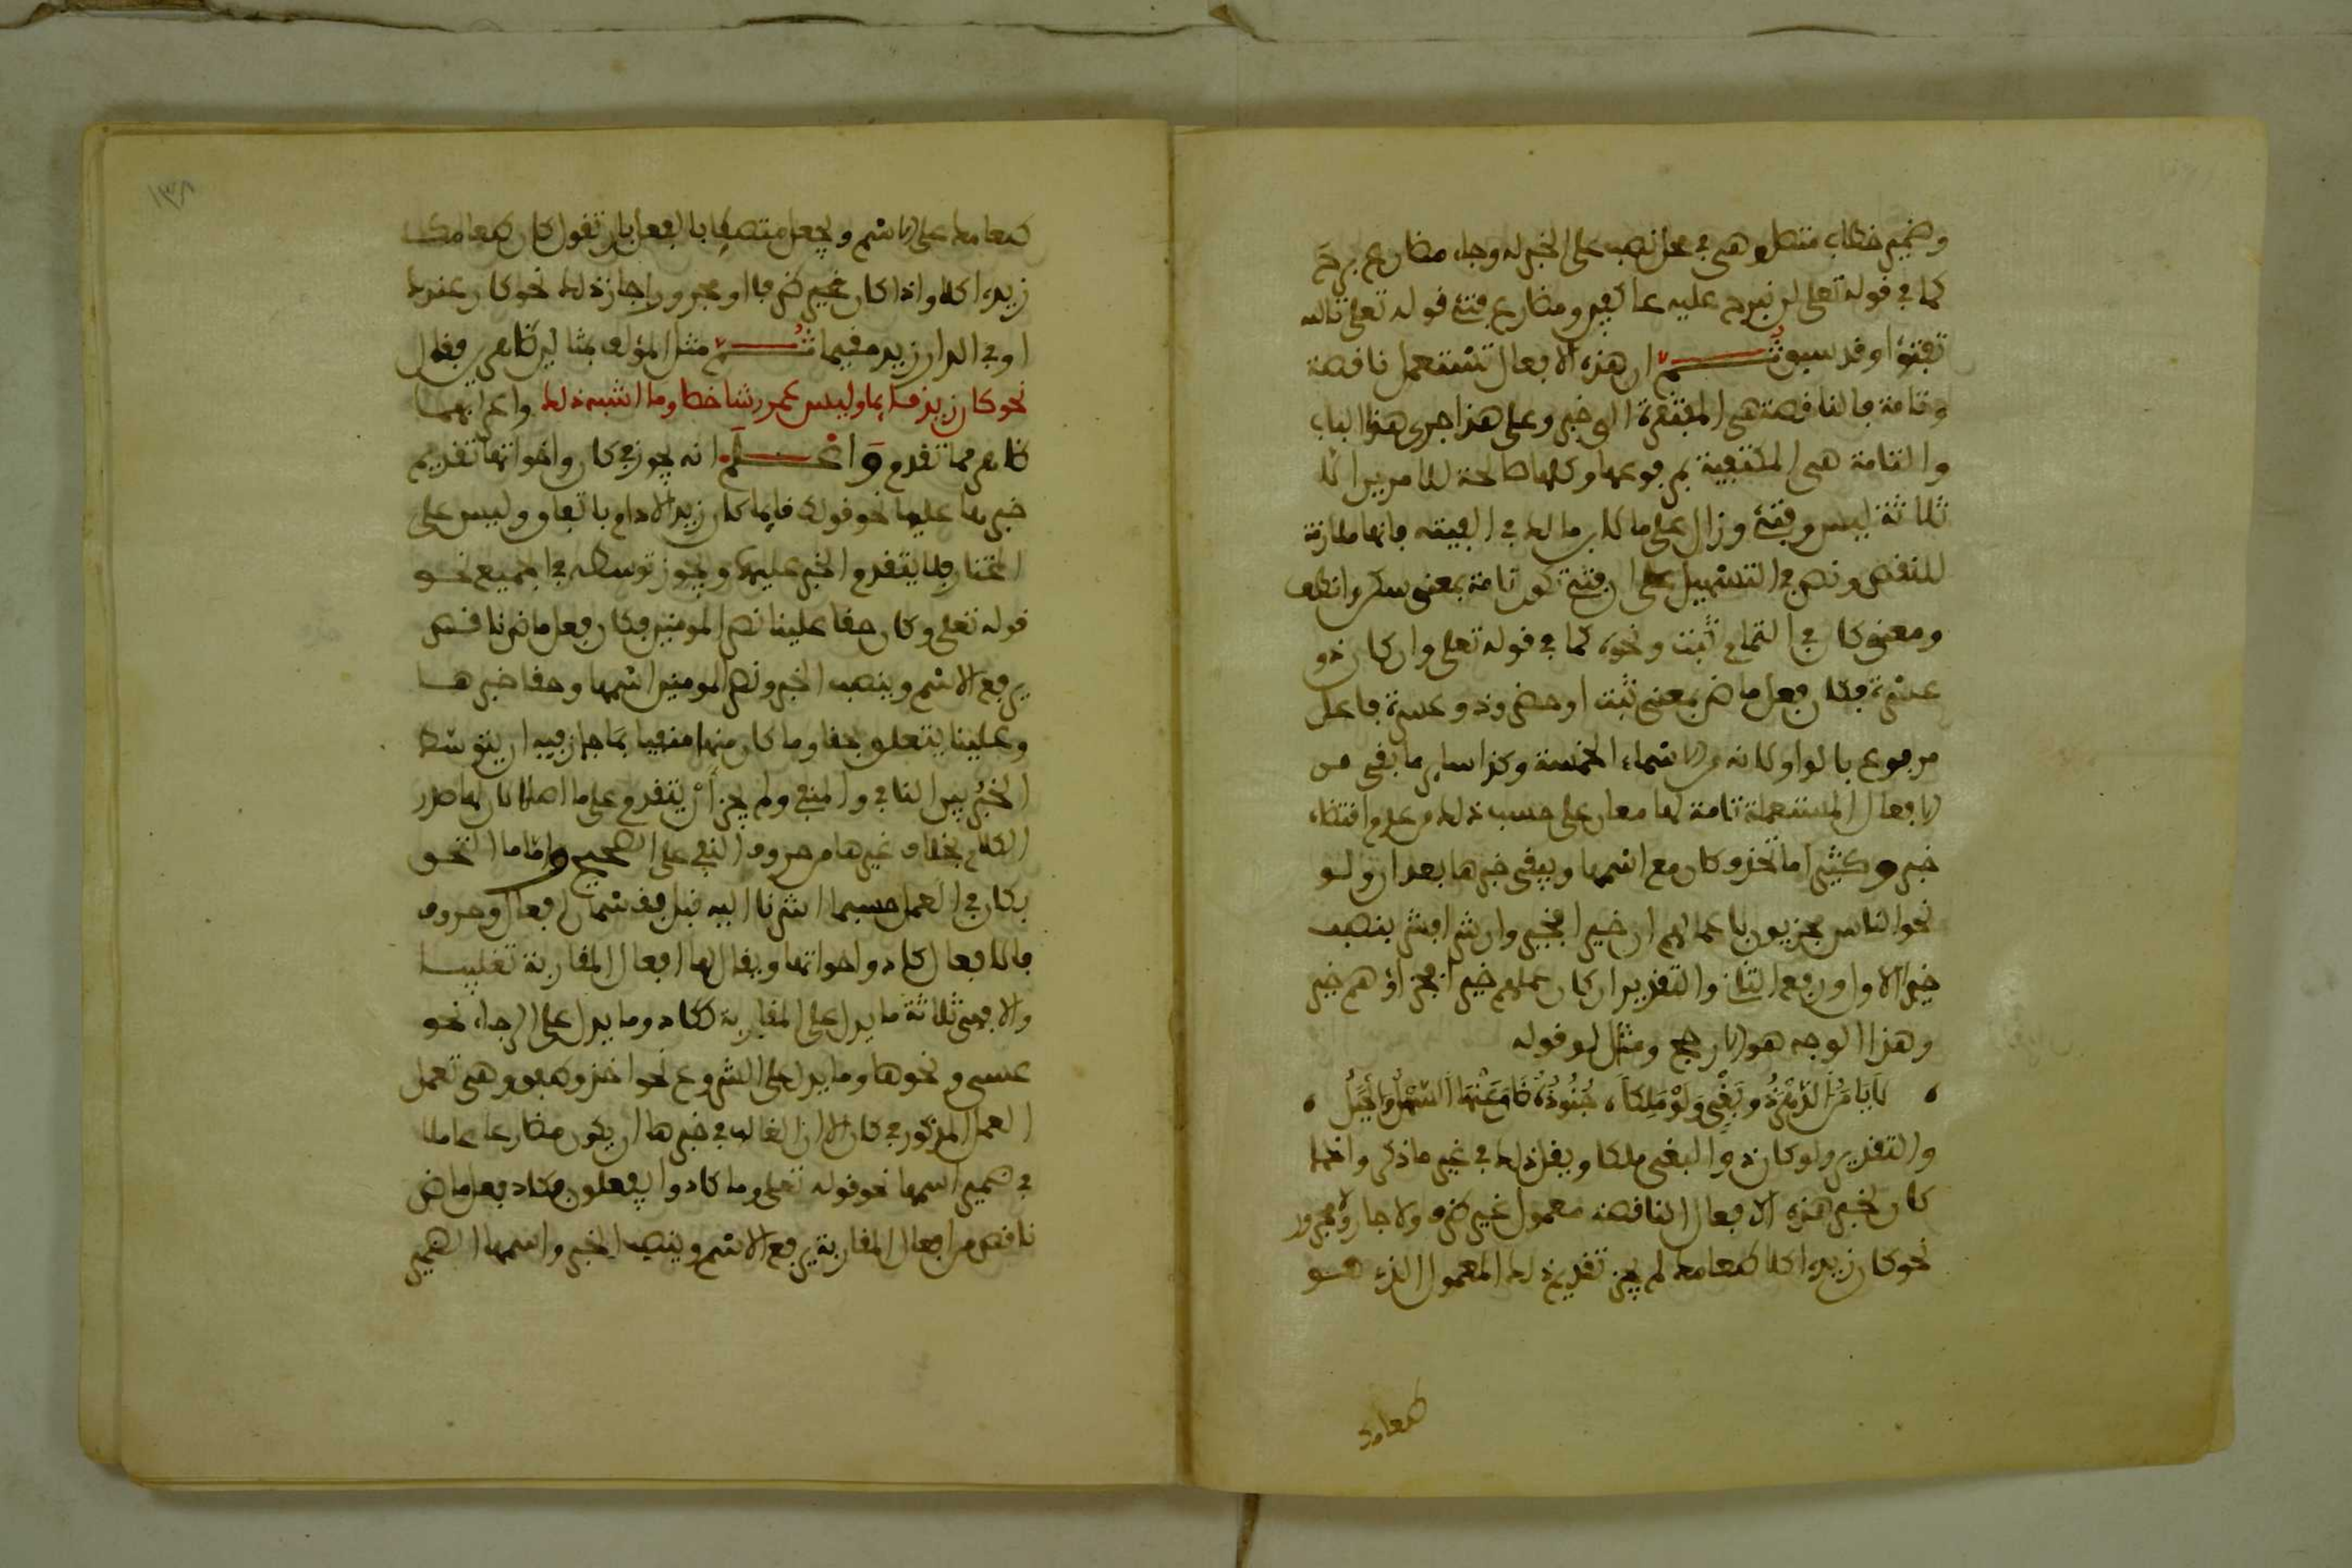 وضمير خطاب متصل وهي في محل نصب على الخبر له وجاء مضارع برح
كما في قوله تعلى لن نبرح عليه عاكفين ومضارع فتئ قوله تعلى تالله
تفتؤا وقد سبق ثم ان هذه الافعال تستعمل ناقصة
وتامة فالناقصة هي المفتقرة الى خبر وعلى هذا جرى هذا الباب
والتامة هي المكتفية بمرفوعها وكلها صالحة للامرين الا
ثلاثة ليس وفتئ وزال على ما لابن مالك في الفيته فانها ملازمة
للنقص ونص في التسهيل على ان فتئ تكون تامة بمعنى سكن واطف
ومعنى كان في التمام ثبت ونحوه كما في قوله تعلى وان كان ذو
عسرة فكان فعل ماض بمعنى ثبت او حضر وذو عسرة فاعل
مرفوع بالواو لانه من الاسماء الخمسة وكذا ساير ما بقي من
الافعال المستعملة تامة لها معان على حسب ذلك من عدم اقتضاء
خبر وكثيرا ما تحذف كان مع اسمها ويبقى خبرها بعد ان ولو
نحو الناس مجزيون باعمالهم ان خيرا فخير وان شرا فشر بنصب
خير الاول ورفع الثاني والتقدير ان كان عملهم خيرا فجزاؤهم خير
وهذا الوجه هو الارجح ومثل لو قوله
لا يامن الدهر ذو بغي ولو ملكا ، جنوده ضاق عنها السهل والجبل ،
والتقدير ولو كان ذو البغي ملكا ويقل ذلك في غير ما ذكر واذا
كان لخبر هذه الافعال الناقصة معمول غير ظرف ولا جار ولا مجرور
نحو كان زيد اكلا طعامك لم يجز تقديم ذلك المعمول الذي هو
طعامك
١٣٨
طعامك على الاسم ويجعل متصلا بالفعل بان تقول كان طعامك
زيد اكلا واذا كان الخبر ظرفا او مجرورا جاز ذلك نحو كان عندك
او في الدار زيد مقيما ثم مثل المؤلف بمثالين ظاهرين فقال
نحو كان زيد قايما وليس عمرو شاخصا وما اشبه ذلك واعرابهما
ظاهر مما تقدم واعلم انه يجوز في كان واخواتها تقديم
خبرها عليها نحو قولك قايما كان زيد الا دام باتفاق وليس على
المختار فلا يتقدم الخبر عليها ويجوز توسطه في الجميع نحو
قوله تعلى وكان حقا علينا نصر المومنين فكان فعل ماض ناقص
يرفع الاسم وينصب الخبر ونصر المومنين اسمها وحقا خبرها
وعلينا يتعلق بحقا وما كان منها منفيا بما جاز فيه ان يتوسط
الخبر بين النافي والمنفي ولم يجز ان يتقدم على ما اصلا لان لها صدر
الكلام بخلاف غيرها من حروف النفي على الصحيح واما ما التحق
بكان في العمل حسبما اشرنا اليه قبل فقسمان افعال وحروف
فالافعال كاد واخواتها ويقال لها افعال المقاربة تغليبا
والا فهي ثلاثة ما يدل على المقاربة ككاد وما يدل على الرجاء نحو
عسى ونحوها وما يدل على الشروع نحو اخذ وطفق وهي تعمل
العمل المذكور في كان الا ان الغالب في خبرها ان يكون مضارعا عاملا
في ضمير اسمها نحو قوله تعلى وما كادوا يفعلون فكاد فعل ماض
ناقص من افعال المقاربة يرفع الاسم وينصب الخبر واسمها الضمير